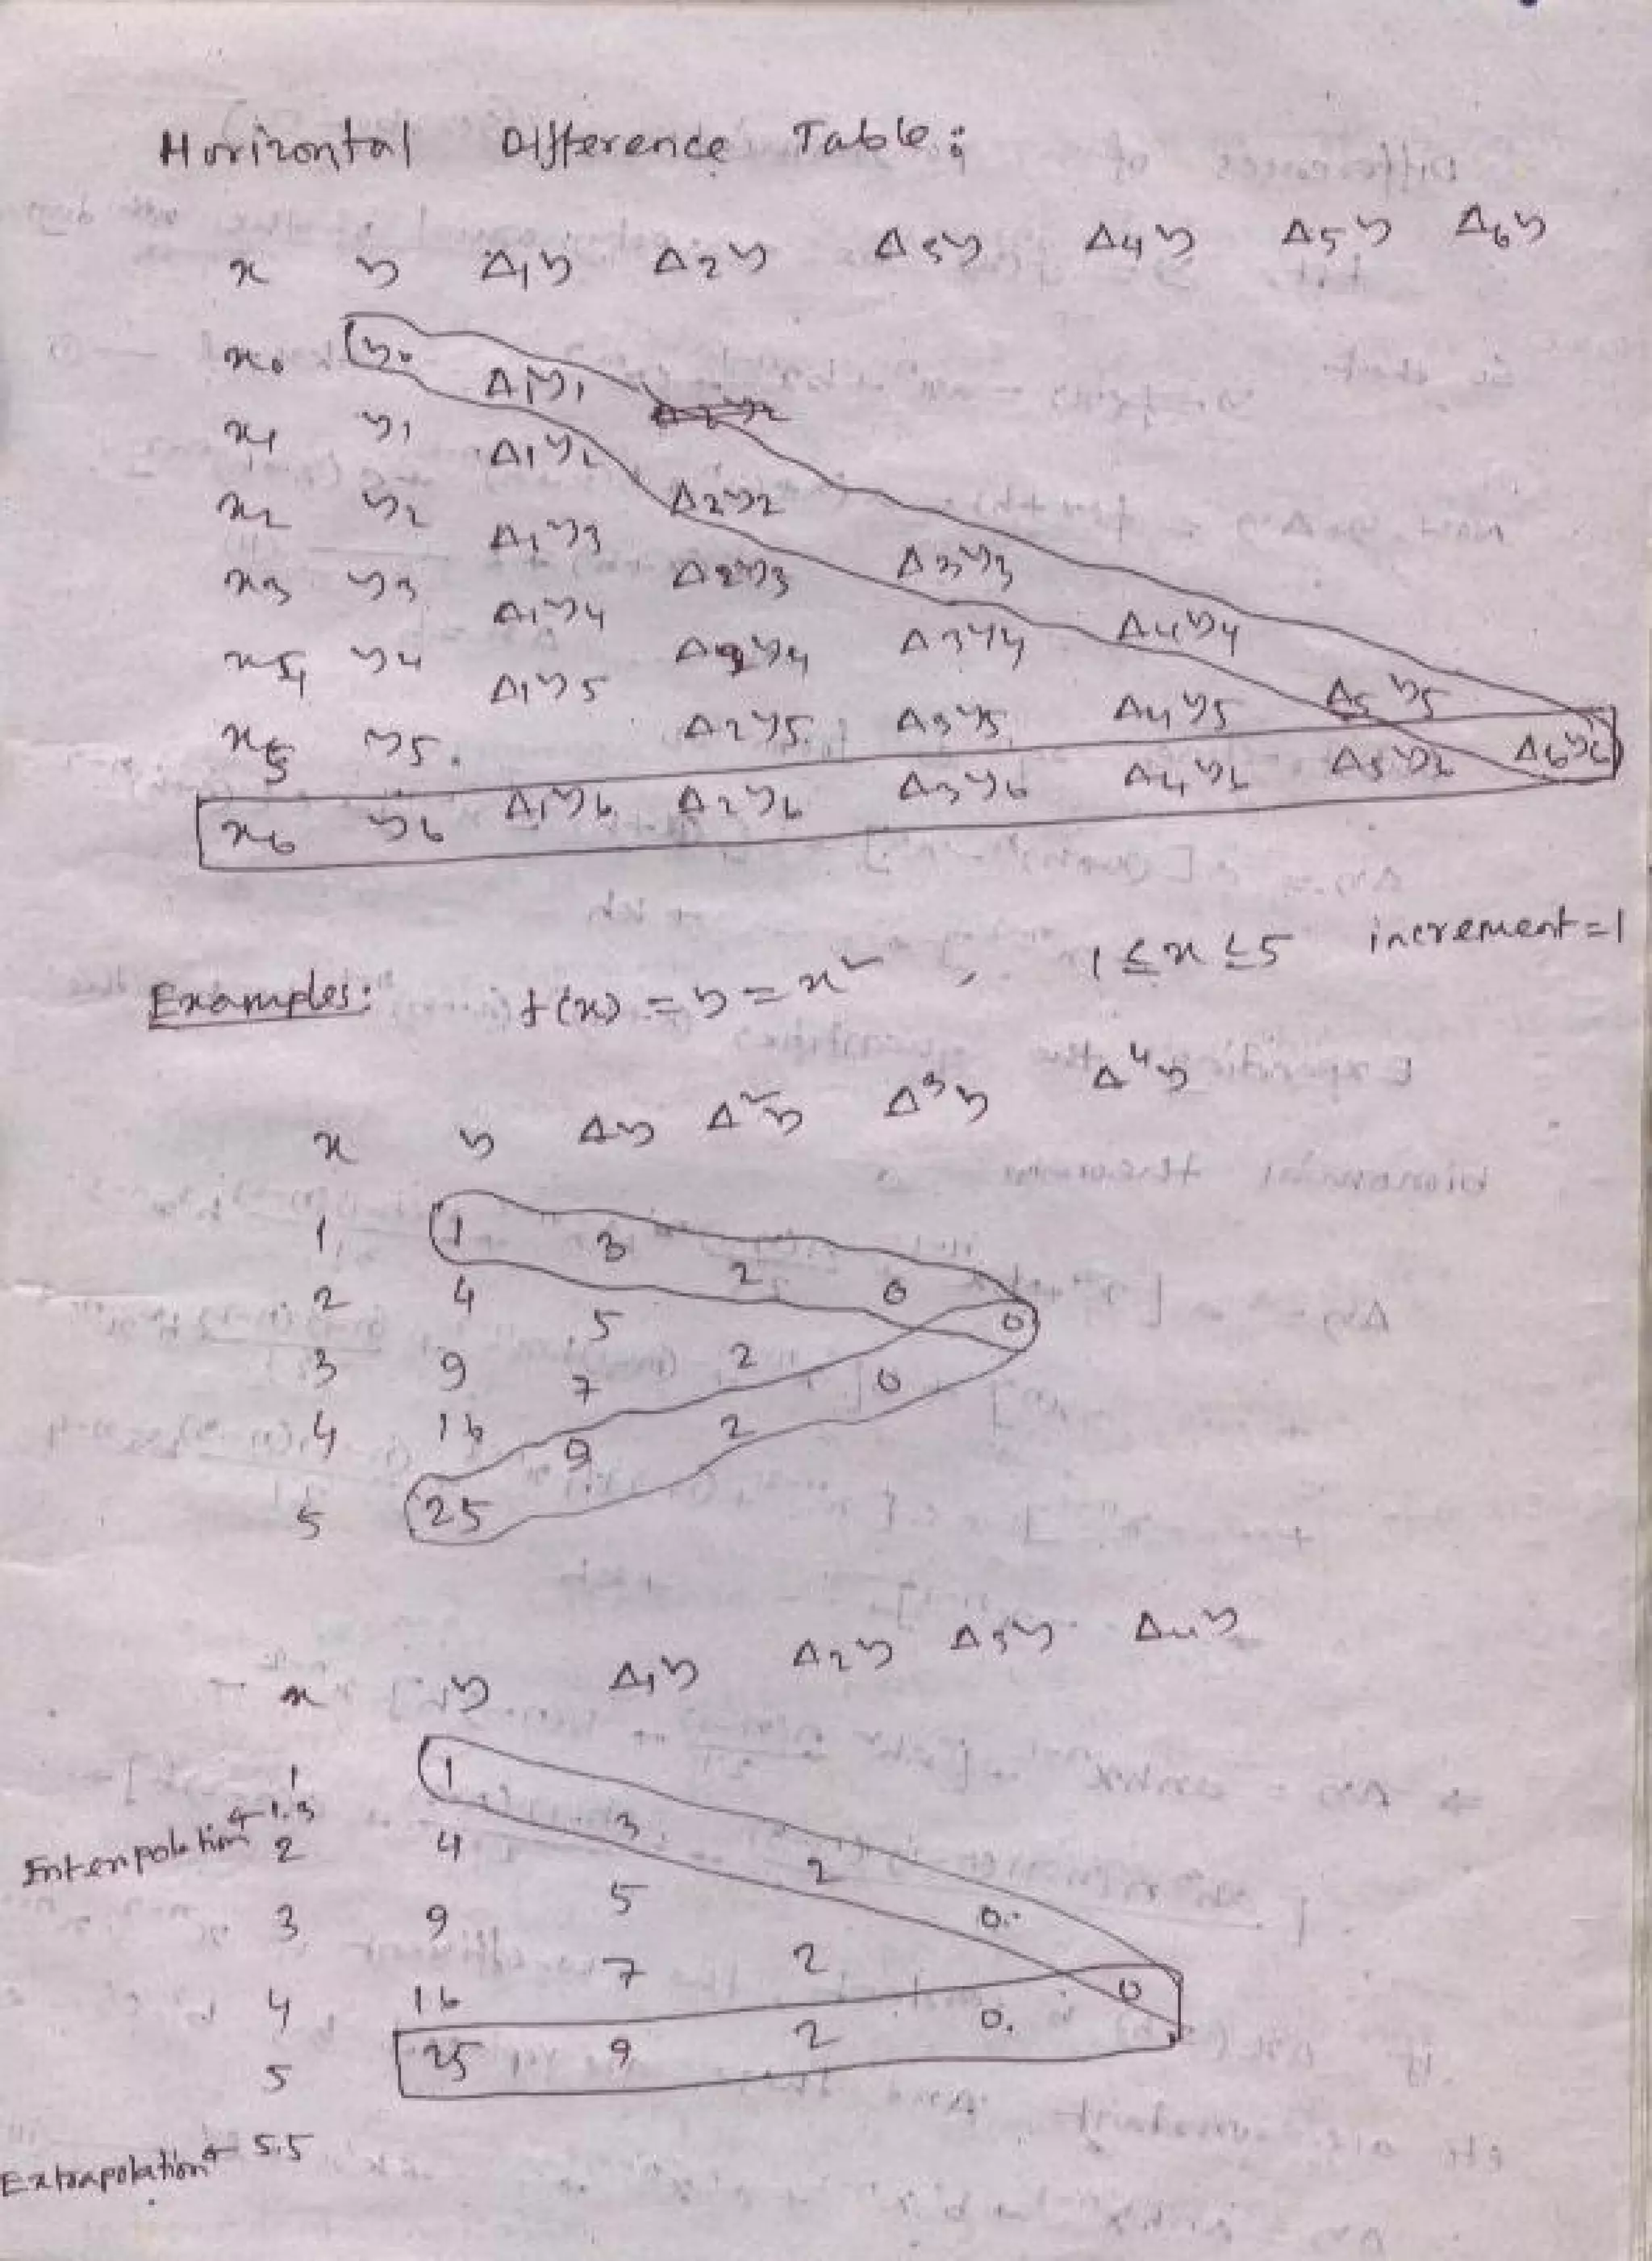 Horizontal Difference Table:
x y Δ1y Δ2y Δ3y Δ4y Δ5y Δ6y
x0 y0
Δ1y1
x1 y1 Δ1y2
x2 y2 Δ2y2
Δ1y3
x3 y3 Δ2y3 Δ3y3
Δ1y4
x4 y4 Δ2y4 Δ3y4 Δ4y4
Δ1y5
x5 y5 Δ2y5 Δ3y5 Δ4y5 Δ5y5
x6 y6 Δ1y6 Δ2y6 Δ3y6 Δ4y6 Δ5y6 Δ6y6
Examples: f(x) = y = x², 1 ≤ x ≤ 5 increment = 1
x y Δy Δ²y Δ³y Δ⁴y
1 1 3
2 4 2 0
5 0
3 9 2
7 0
4 16 2
9
5 25
x y Δ1y Δ2y Δ3y Δ4y
1 1
Interpolation ← 1.3 3
2 4 2
3 9 5 0.
7 2
4 16 0
5 25 9 2 0.
Extrapolation ← 5.5